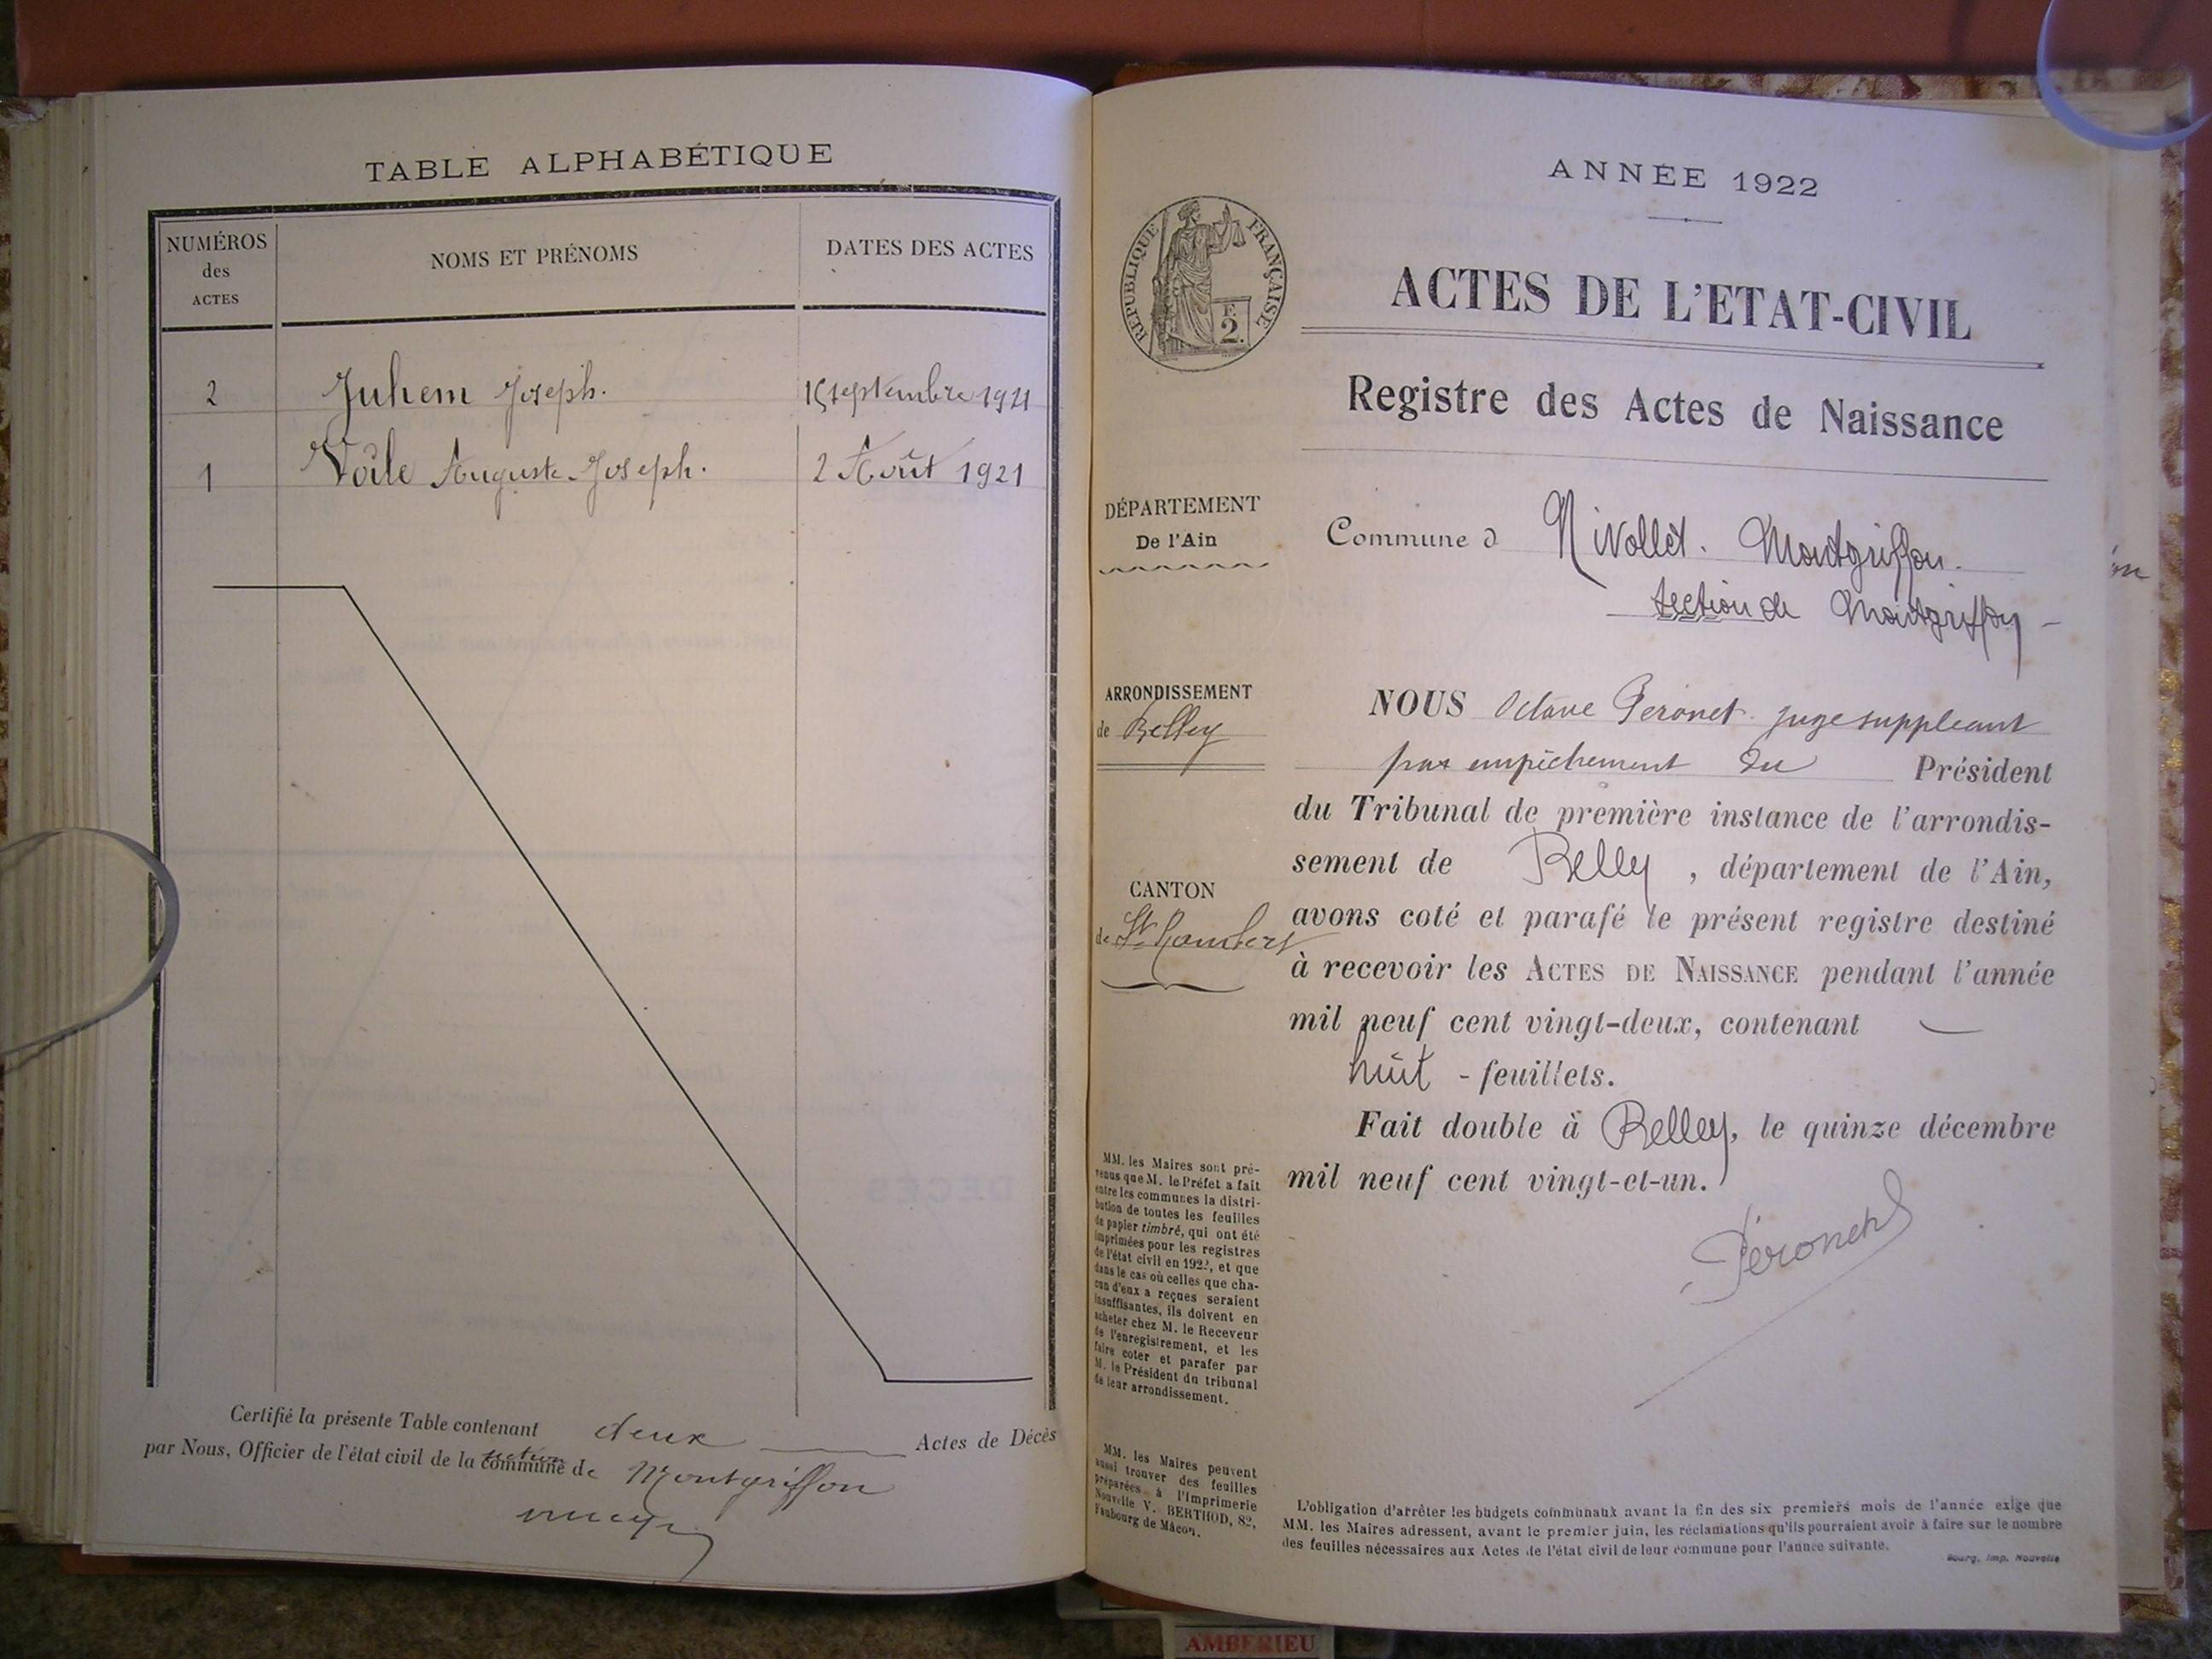 TABLE ALPHABÉTIQUE
NUMÉROS des ACTES
NOMS ET PRÉNOMS
DATES DES ACTES
2 Juhem Joseph. septembre 1921
1 Auguste-Joseph. 2 Août 1921
Certifié la présente Table contenant deux Actes de Décès
par Nous, Officier de l'état civil de la commune section de Montgriffon
ANNÉE 1922
RÉPUBLIQUE FRANÇAISE
F.
2.
ACTES DE L'ETAT-CIVIL
Registre des Actes de Naissance
DÉPARTEMENT
De l'Ain
Commune d Nivollet. Montgriffon.
section de Montgriffon
ARRONDISSEMENT
de Belley
CANTON
de St Rambert
NOUS Octave Peronet juge suppleant
par empêchement du Président
du Tribunal de première instance de l'arrondis-
sement de Belley, département de l'Ain,
avons coté et parafé le présent registre destiné
à recevoir les ACTES DE NAISSANCE pendant l'année
mil neuf cent vingt-deux, contenant
huit - feuillets.
Fait double à Belley, le quinze décembre
mil neuf cent vingt-et-un.
Péronet
MM. les Maires sont pré-
venus que M. le Préfet a fait
entre les communes la distri-
bution de toutes les feuilles
de papier timbré, qui ont été
imprimées pour les registres
de l'état civil en 1922, et que
dans le cas où celles que cha-
cun d'eux a reçues seraient
insuffisantes, ils doivent en
acheter chez M. le Receveur
de l'enregistrement, et les
faire coter et parafer par
M. le Président du tribunal
de leur arrondissement.
MM. les Maires peuvent
aussi trouver des feuilles
préparées à l'Imprimerie
Nouvelle V. BERTHOD, 82,
Faubourg de Mâcon.
L'obligation d'arrêter les budgets communaux avant la fin des six premiers mois de l'année exige que
MM. les Maires adressent, avant le premier juin, les réclamations qu'ils pourraient avoir à faire sur le nombre
des feuilles nécessaires aux Actes de l'état civil de leur commune pour l'année suivante.
Bourg, Imp. Nouvelle
AMBERIEU